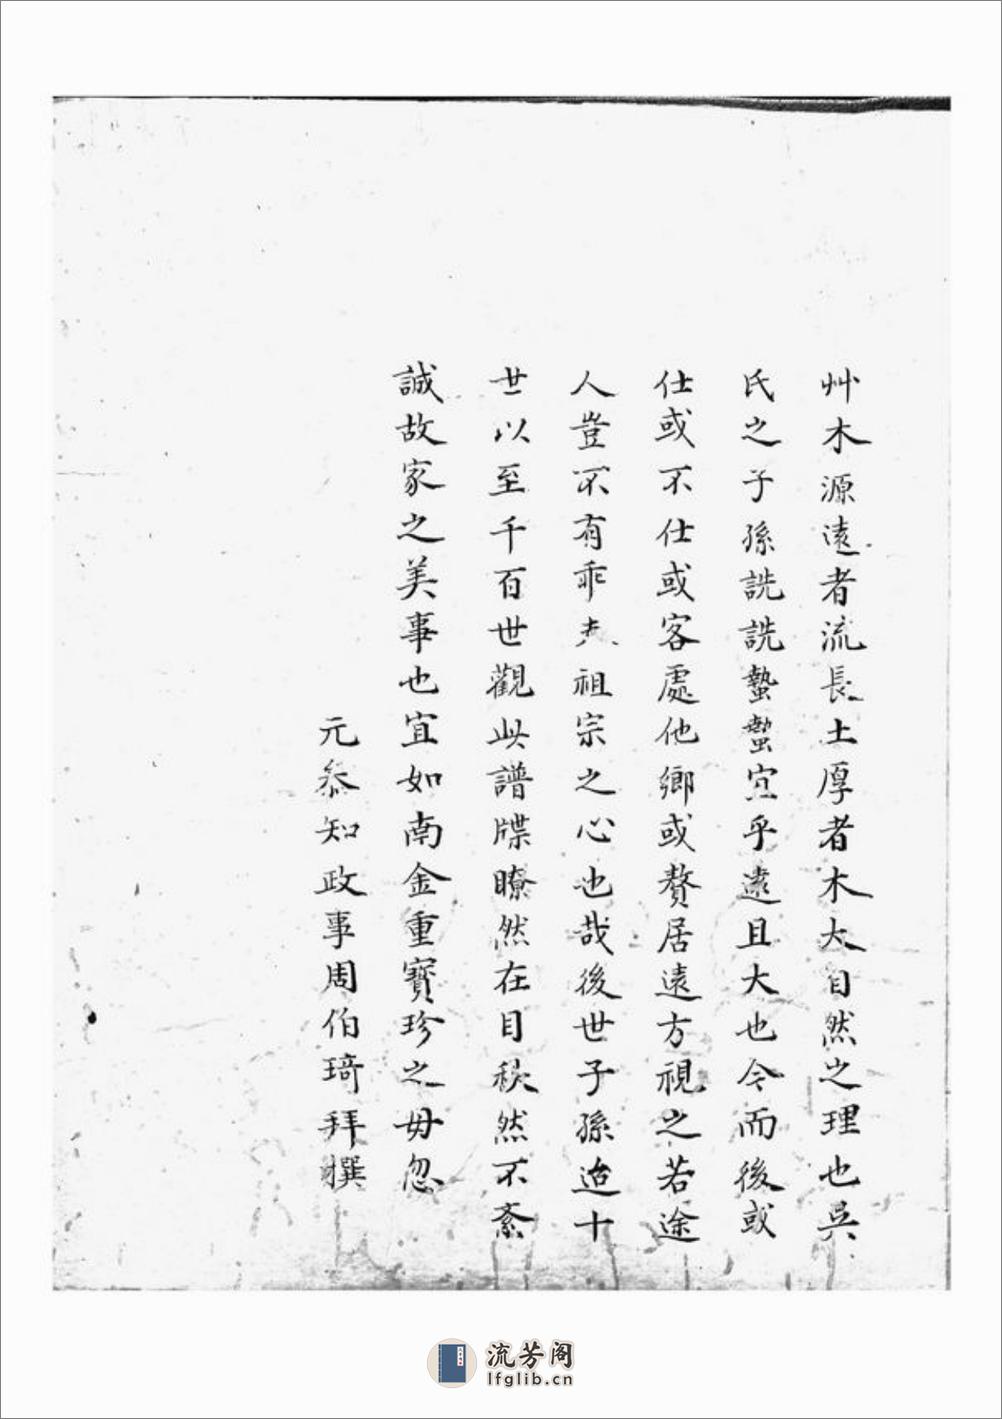 艸木源遠者流長土厚者木大自然之理也吳
氏之子孫詵詵蟄蟄宜乎遠且大也今而後或
仕或不仕或客處他鄉或贅居遠方視之若途
人豈不有乖夫祖宗之心也哉後世子孫迨十
世以至千百世觀此譜牒瞭然在目秩然不紊
誠故家之美事也宜如南金重寶珍之毋忽
元叅知政事周伯琦拜撰
流芳阁
lfglib.cn